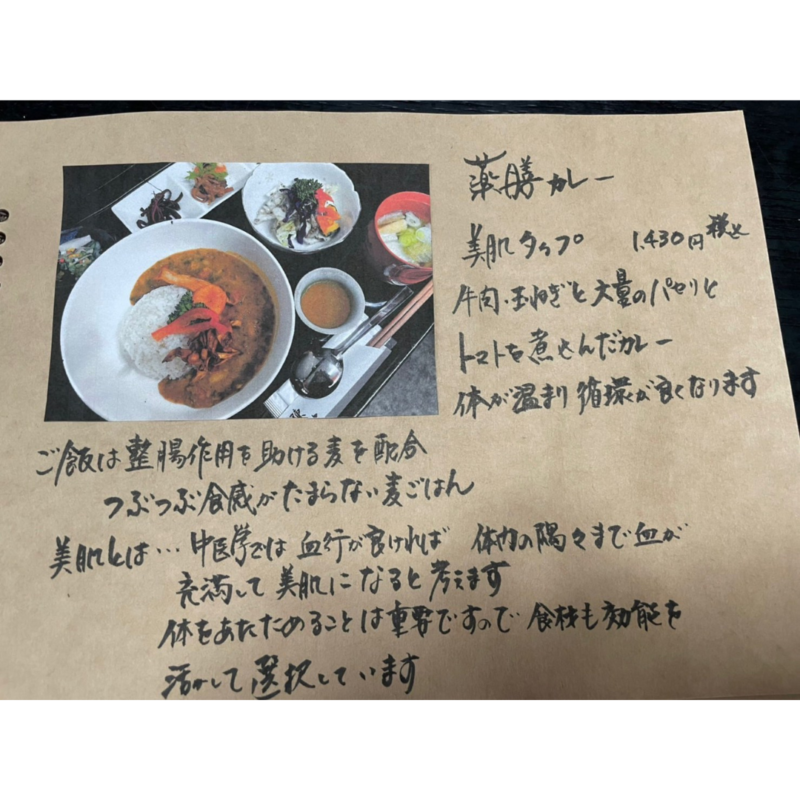 薬膳カレー
美肌タップ 1,430円 税込
牛肉・玉ねぎと大量のパセリと
トマトを煮込んだカレー
体が温まり循環が良くなります
ご飯は整腸作用を助ける麦を配合
つぶつぶ食感がたまらない麦ごはん
美肌とは… 中医学では 血行が良ければ 体内の隅々まで血が
充満して美肌になると考えます
体をあたためることは重要ですので 食材も効能を
活かして選択しています